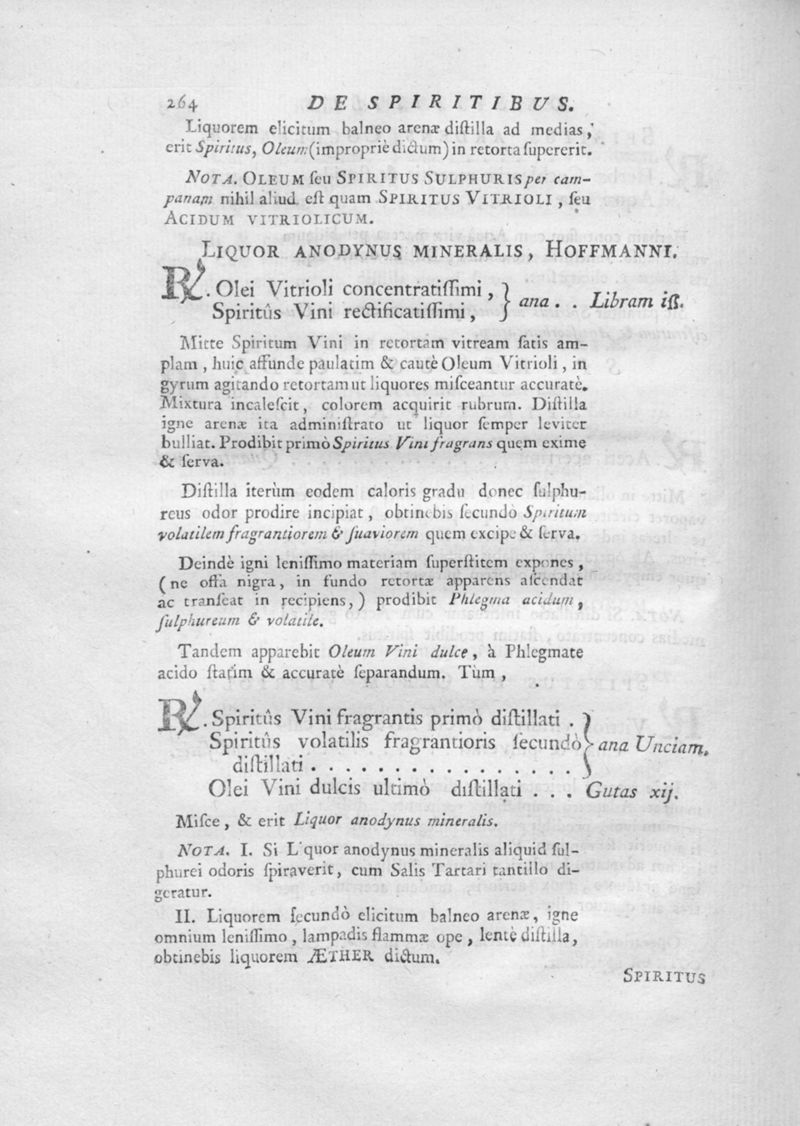 264 DE SPIRITIBUS.
Liquorem elicitum balneo arenæ diſtilla ad medias,
erit Spiritus, Oleum (impropriè dictum) in retorta ſupererit.
NOTA. OLEUM ſeu SPIRITUS SULPHURIS per cam-
panam nihil aliud eſt quam SPIRITUS VITRIOLI, ſeu
ACIDUM VITRIOLICUM.
LIQUOR ANODYNUS MINERALIS, HOFFMANNI.
℞. Olei Vitrioli concentratiſſimi, } ana . . Libram iß.
Spiritûs Vini rectificatiſſimi,
Mitte Spiritum Vini in retortam vitream ſatis am-
plam, huic affunde paulatim & cautè Oleum Vitrioli, in
gyrum agitando retortam ut liquores miſceantur accuratè.
Mixtura incaleſcit, colorem acquirit rubrum. Diſtilla
igne arenæ ita adminiſtrato ut liquor ſemper leviter
bulliat. Prodibit primò Spiritus Vini fragrans quem exime
& ſerva.
Diſtilla iterùm eodem caloris gradu donec ſulphu-
reus odor prodire incipiat, obtinebis ſecundò Spiritum
volatilem fragrantiorem & ſuaviorem quem excipe & ſerva.
Deindè igni leniſſimo materiam ſuperſtitem expones,
(ne offa nigra, in fundo retortæ apparens aſcendat
ac tranſeat in recipiens,) prodibit Phlegma acidum,
ſulphureum & volatile.
Tandem apparebit Oleum Vini dulce, à Phlegmate
acido ſtatìm & accuratè ſeparandum. Tùm,
℞. Spiritûs Vini fragrantis primò diſtillati . }
Spiritûs volatilis fragrantioris ſecundò } ana Unciam.
diſtillati . . . . . . . . . . . . . . . }
Olei Vini dulcis ultimò diſtillati . . . Gutas xij.
Miſce, & erit Liquor anodynus mineralis.
NOTA. I. Si L'quor anodynus mineralis aliquid ſul-
phurei odoris ſpiraverit, cum Salis Tartari tantillo di-
geratur.
II. Liquorem ſecundò elicitum balneo arenæ, igne
omnium leniſſimo, lampadis flammæ ope, lentè diſtilla,
obtinebis liquorem ÆTHER dictum.
SPIRITUS